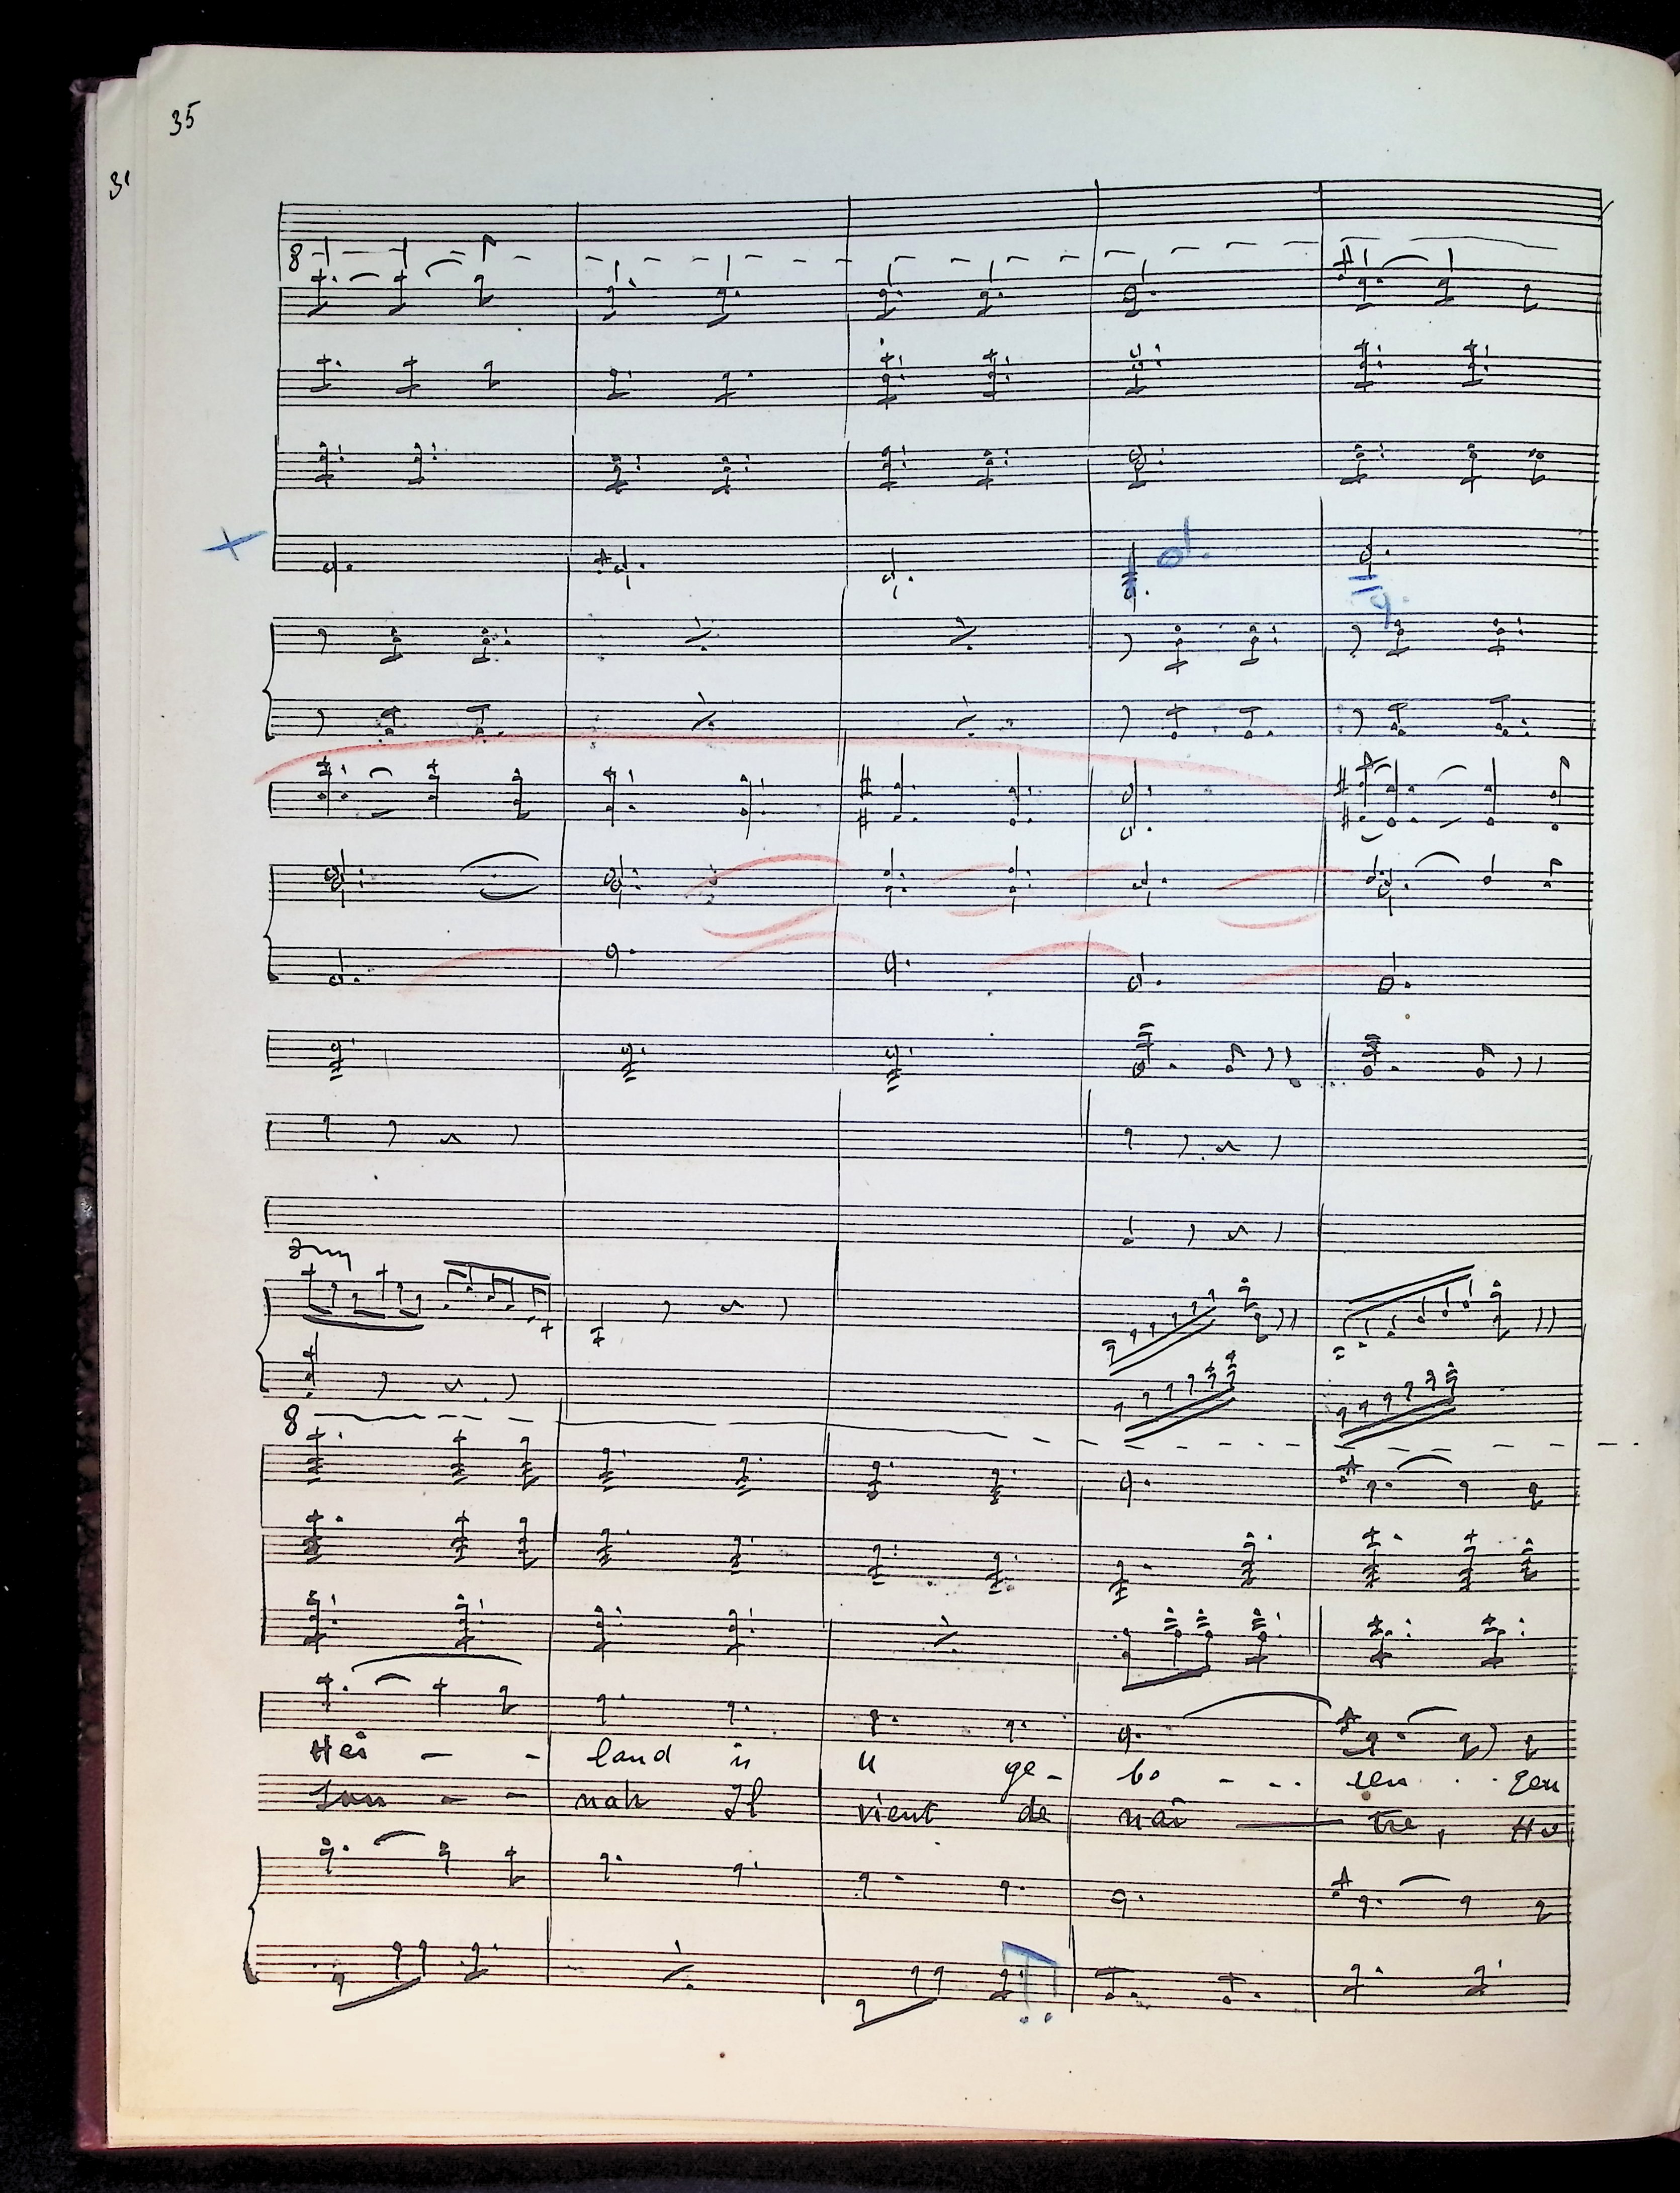 35
3
8
8
Hei - - land is u ge- bo - - - ren . . Een
san - - nah Il vient de naî — tre, Ho